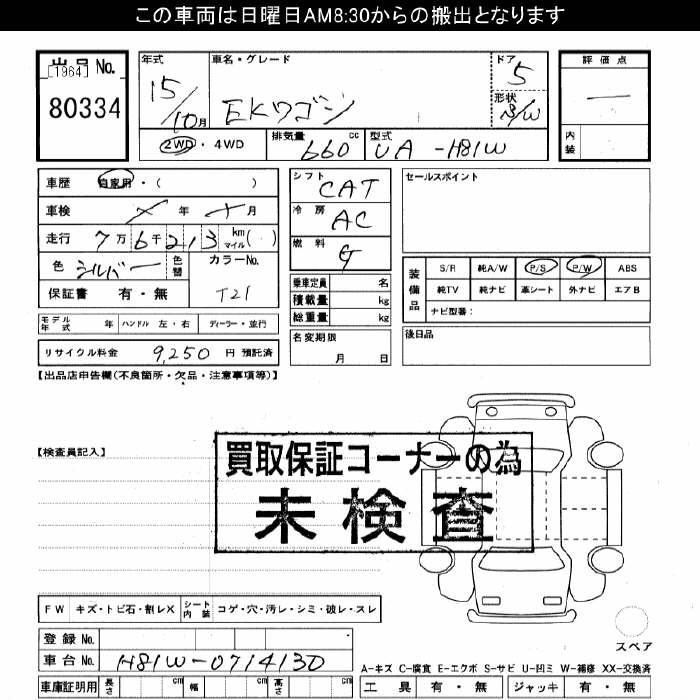 この車両は日曜日AM8:30からの搬出となります
出品No.
[1964]
80334
年式
15/10月
車名・グレード
EKワゴン
ドア
5
形状
S/W
評価点
—
内装
2WD・4WD
排気量
660 cc
型式
UA-H81W
車歴 自家用・( )
車検 年 月
走行 7万6千213 km マイル( )
色 シルバー 色替
カラーNo.
T21
保証書 有・無
シフト
CAT
冷房
AC
燃料
G
乗車定員 名
積載量 kg
総重量 kg
名変期限
月 日
セールスポイント
装備品
S/R 純A/W P/S P/W ABS
純TV 純ナビ 革シート 外ナビ エアB
ナビ型番:
後日品
モデル年式 年 ハンドル 左・右 ディーラー・並行
リサイクル料金 9,250 円 預託済
【出品店申告欄(不良箇所・欠品・注意事項等)】
【検査員記入】
買取保証コーナーの為
未検査
FW キズ・トビ石・割レX シート内装 コゲ・穴・汚レ・シミ・破レ・スレ
登録No.
車台No. H81W-0714130
車庫証明用 長さ cm 幅 cm 高さ cm
スペア
A-キズ C-腐食 E-エクボ S-サビ U-凹ミ W-補修 XX-交換済
工具 有・無 ジャッキ 有・無